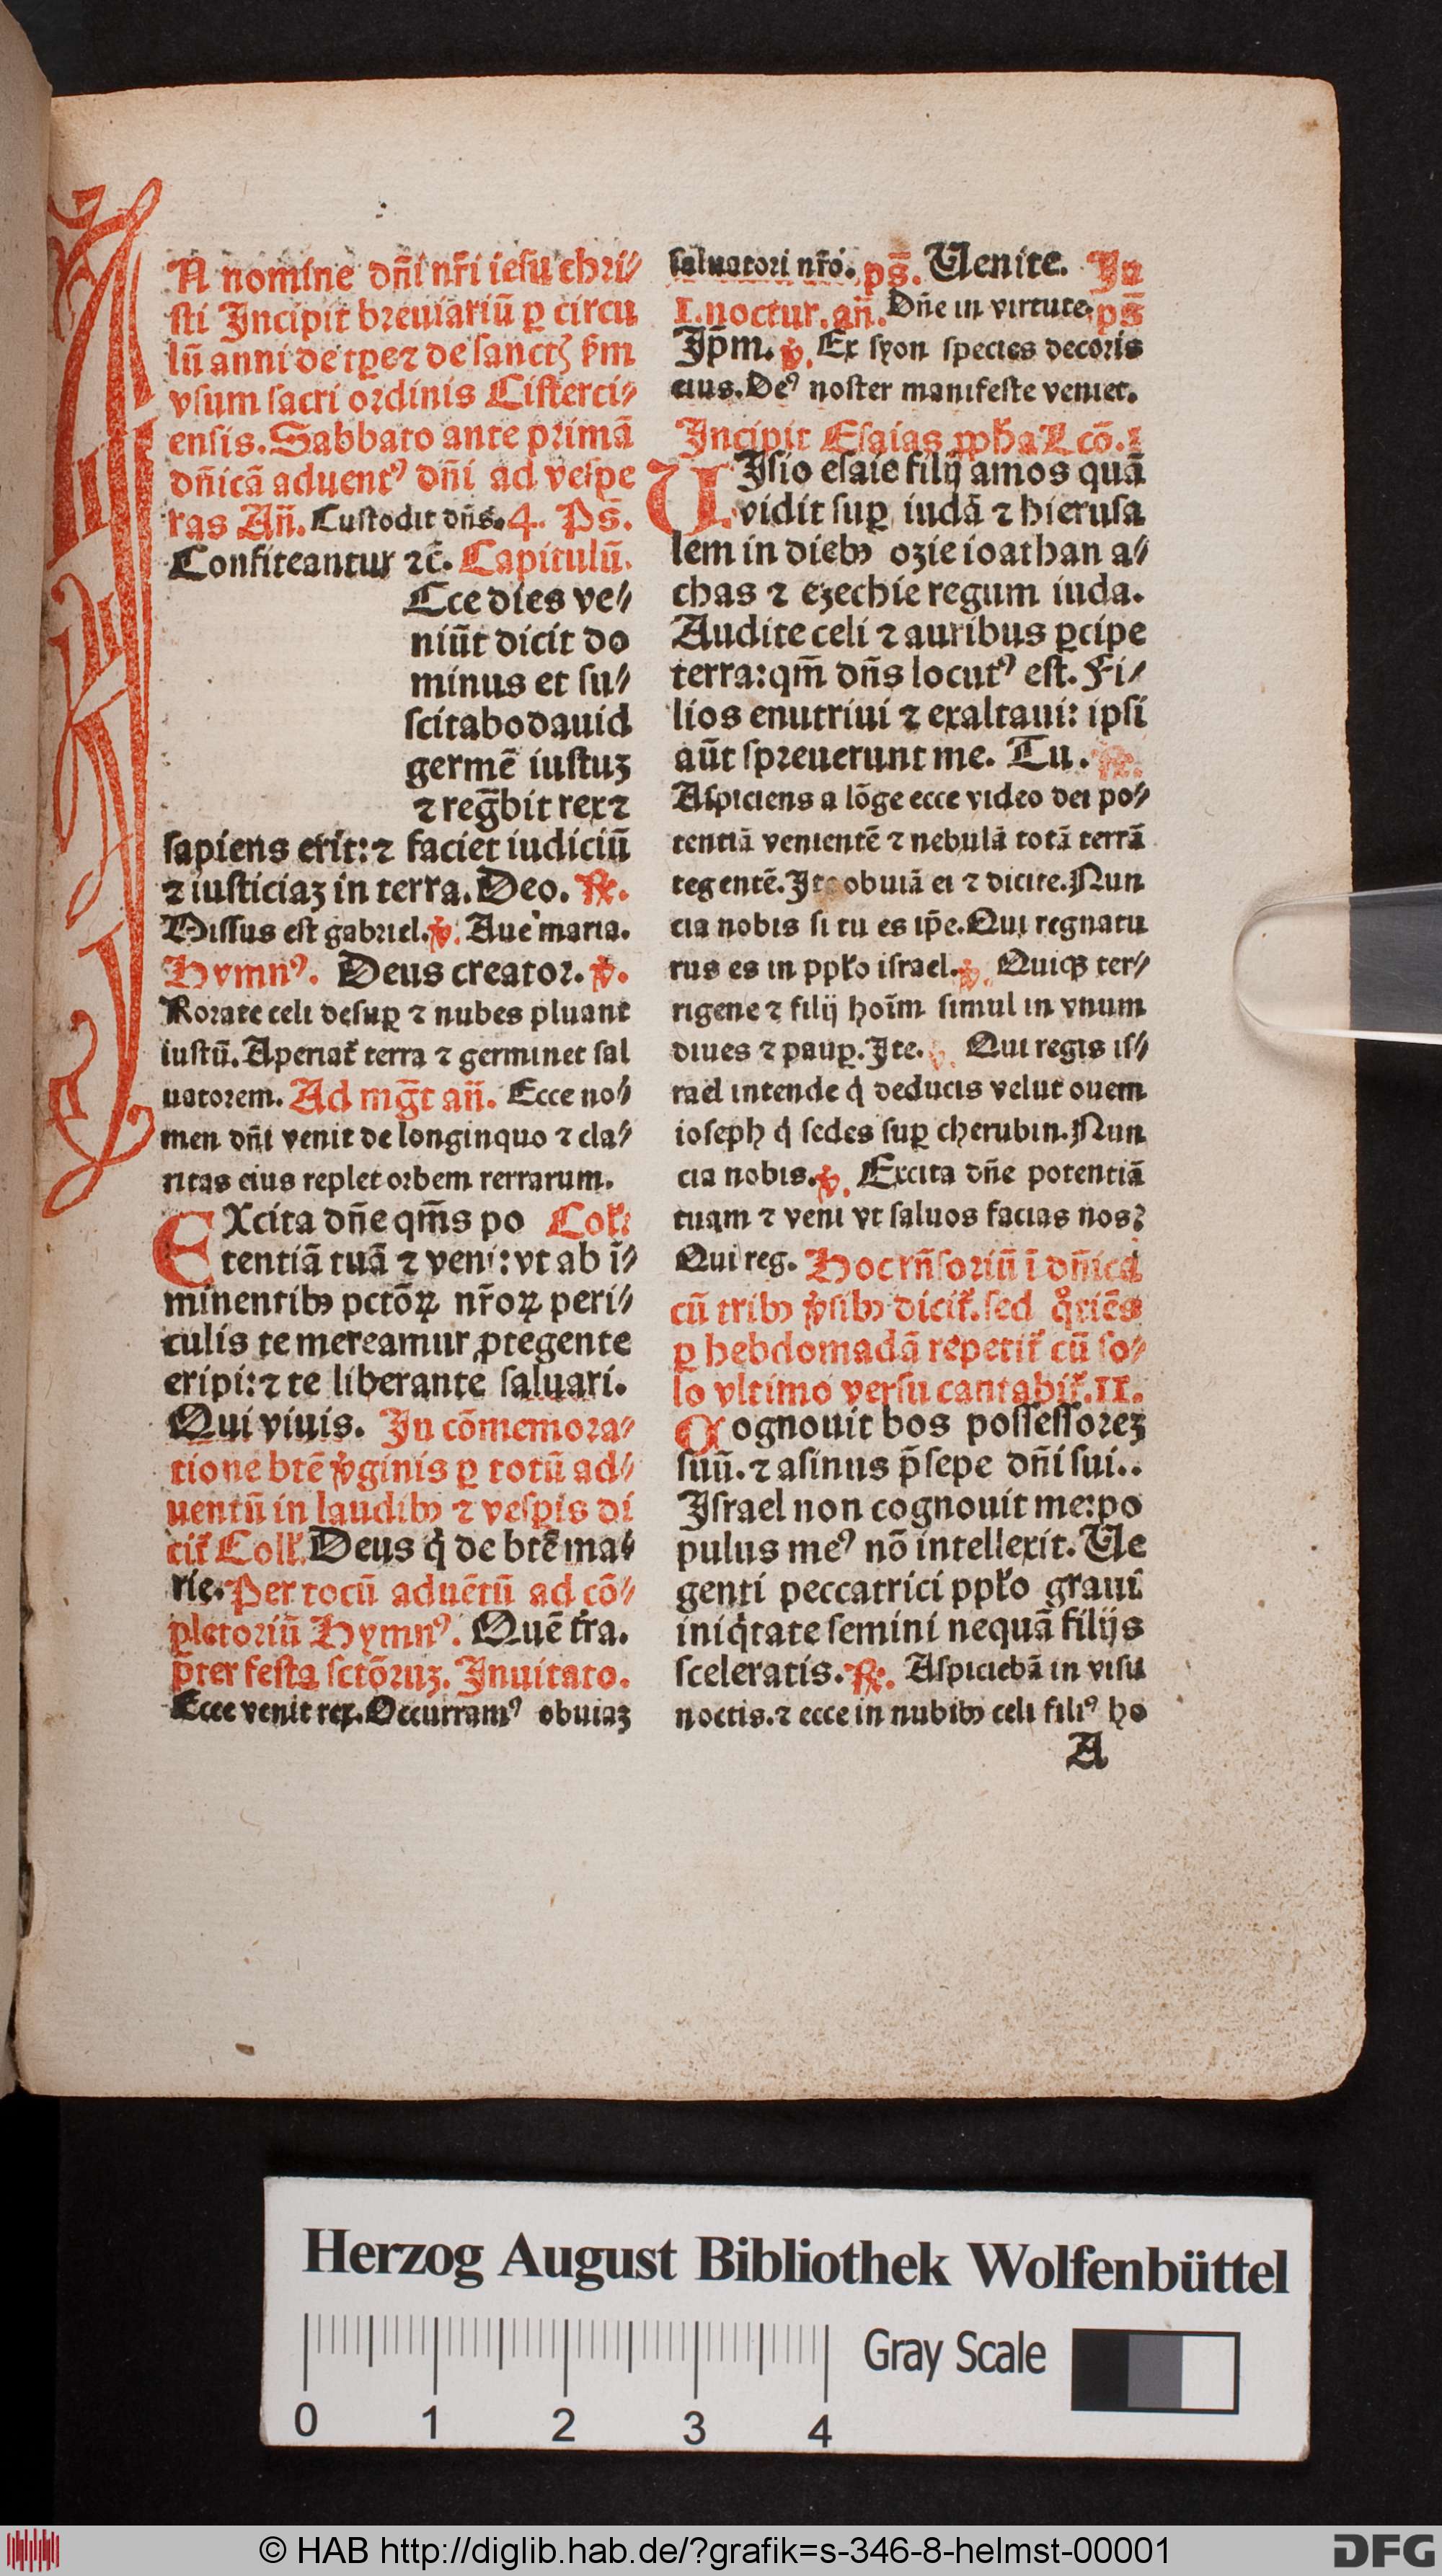 N nomine dn̄i nr̄i iesu chri⸗
sti Incipit breuiariū ꝑ circu
lū anni de tꝑe ⁊ de sanctꝭ ẜm
vsum sacri ordinis Cisterci⸗
ensis. Sabbato ante primā
dn̄icā aduentꝰ dn̄i ad vespe
ras An̄. Custodit dn̄s. 4. Ps̄.
Confiteantur ⁊c̄. Capitulū.
Ecce dies ve⸗
niūt dicit do
minus et su⸗
scitabo dauid
germē iustuꝫ
⁊ reḡbit rex ⁊
sapiens erit: ⁊ faciet iudiciū
⁊ iusticiaꝫ in terra. Deo. ℟.
Missus est gabriel. ℣. Aue maria.
Hymnꝰ. Deus creator. ℣.
Rorate celi desuꝑ ⁊ nubes pluant
iustū. Aperiat᷑ terra ⁊ germinet sal
uatorem. Ad mḡt an̄. Ecce no⸗
men dn̄i venit de longinquo ⁊ cla⸗
ritas eius replet orbem rerrarum.
EXcita dn̄e qm̄s po Col̛.
tentiā tuā ⁊ veni: vt ab ī⸗
minentibꝰ pctōꝝ nr̄oꝝ peri⸗
culis te mereamur ꝓtegente
eripi: ⁊ te liberante saluari.
Qui viuis. In cōmemora⸗
tione btē v̓ginis ꝑ totū ad⸗
uentū in laudibꝰ ⁊ vesꝑis di
cit᷑ Coll̛. Deus q̇ de btē ma⸗
rie. Per totū aduētū ad cō⸗
pletoriū Hymnꝰ. Quē tr̄a.
p̄ter festa sctōruꝫ. Inuitato.
Ecce venit rex. Occurramꝰ obuiaꝫ
saluatori nr̄o. ps̄. Uenite. In
I. noctur. an̄. Dn̄e in virtute. ps̄
Ip̄m. ℣. Ex syon species decoris
eius. Deꝰ noster manifeste veniet.
Incipit Esaias ꝓph̄a Lcō. I
UIsio esaie filij amos quā
vidit suꝑ iudā ⁊ hierusa
lem in diebꝰ ozie ioathan a⸗
chas ⁊ ezechie regum iuda.
Audite celi ⁊ auribus ꝑcipe
terra: qm̄ dn̄s locutꝰ est. Fi⸗
lios enutriui ⁊ exaltaui: ipsi
aūt spreuerunt me. Tu. ℟.
Aspiciens a lōge ecce video dei po⸗
tentiā venientē ⁊ nebulā totā terrā
tegentē. Ite obuiā ei ⁊ dicite. Nun
cia nobis si tu es ip̄e. Qui regnatu
rus es in ppl̛o israel. ℣. Quiqꝫ ter⸗
rigene ⁊ filij hoīm simul in vnum
diues ⁊ pauꝑ. Ite. ℣. Qui regis is⸗
rael intende q̇ deducis velut ouem
ioseph q̇ sedes suꝑ cherubin. Nun
cia nobis. ℣. Excita dn̄e potentiā
tuam ⁊ veni vt saluos facias nos?
Qui reg. Hoc rn̄soriū ī dn̄ica
cū tribꝰ v̓sibꝰ dicit᷑. sed q̊tiēs
ꝑ hebdomadā repetit᷑ cū so⸗
lo vltimo versu cantabit᷑. II.
Cognouit bos possessoreꝫ
suū. ⁊ asinus p̄sepe dn̄i sui..
Israel non cognouit me: po
pulus meꝰ nō intellexit. Ue
genti peccatrici ppl̛o graui
iniq̇tate semini nequā filijs
sceleratis. ℟. Aspiciebā in visu
noctis. ⁊ ecce in nubibꝰ celi filiꝰ ho
A
Herzog August Bibliothek Wolfenbüttel
Gray Scale
0 1 2 3 4
© HAB http://diglib.hab.de/?grafik=s-346-8-helmst-00001
DFG